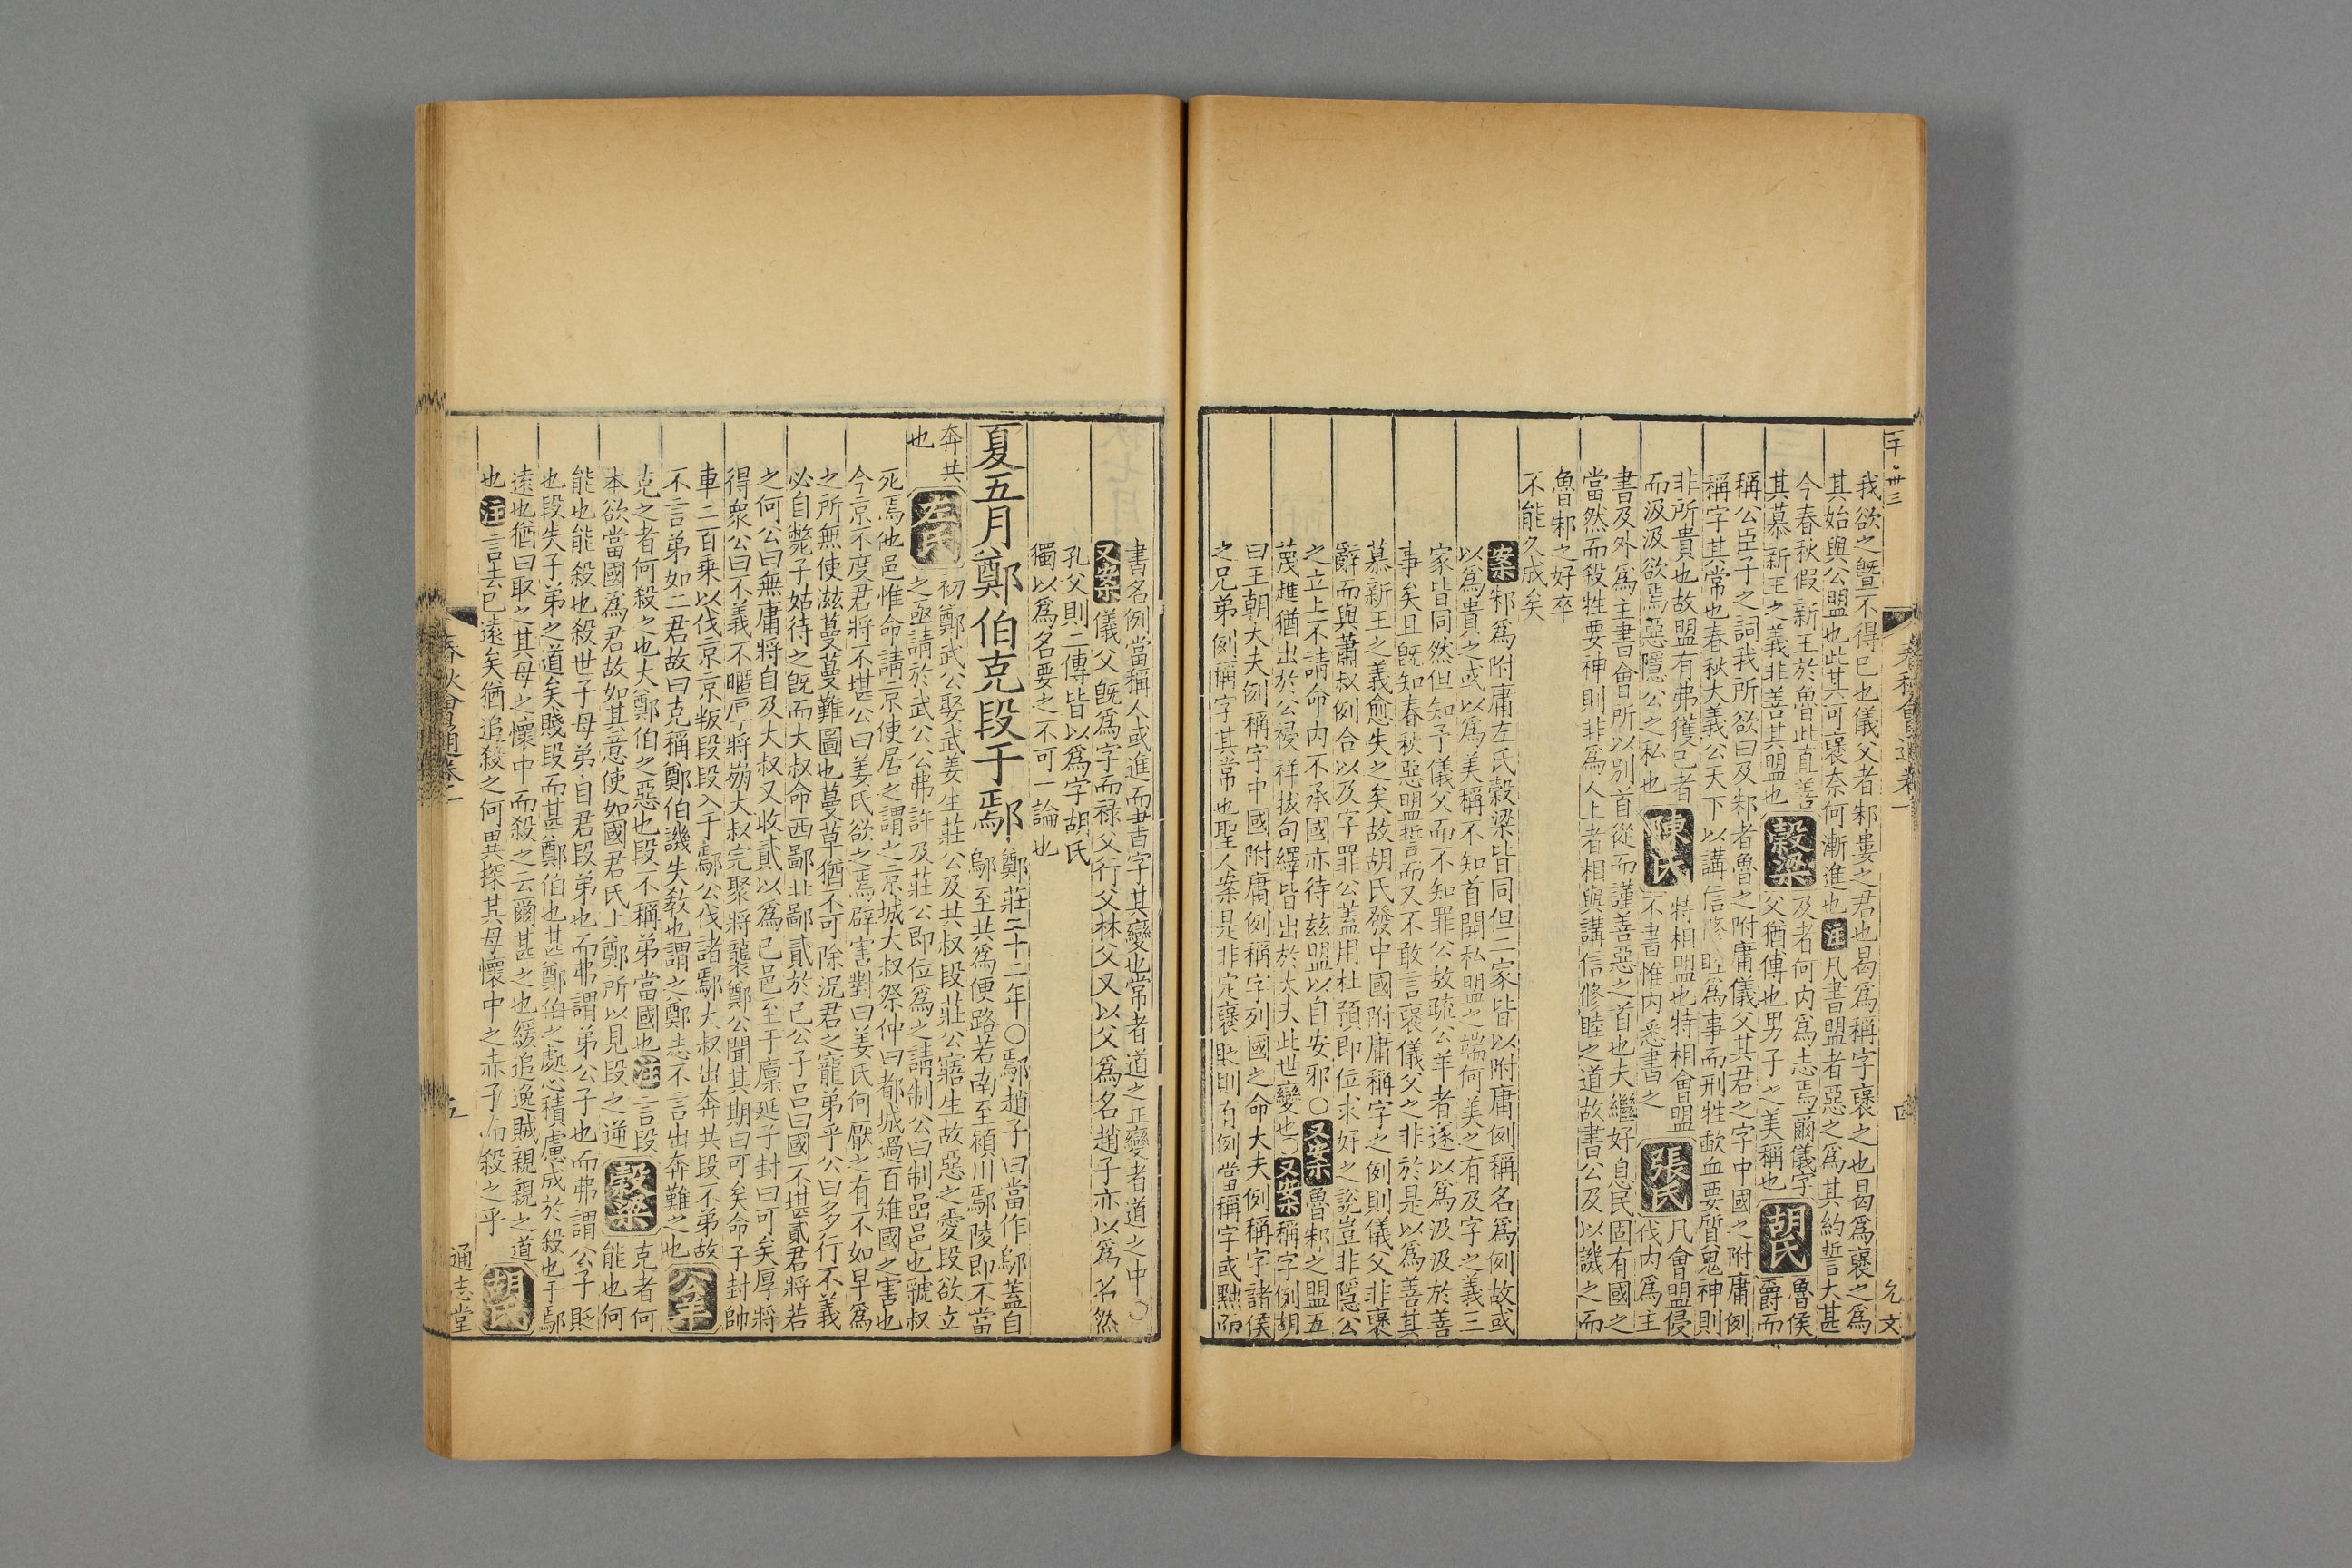 千。卅三
春秋會通卷一
四
允文
我欲之曁不得已也儀父者邾婁之君也曷爲稱字襃之也曷爲襃之爲
其始與公盟也此其可襃奈何漸進也注凡書盟者惡之爲其約誓大甚
今春秋假新王於魯此直善
其慕新王之義非善其盟也
穀梁
及者何内爲志焉爾儀字
父猶傅也男子之美稱也
胡氏
魯侯
爵而
稱公臣子之詞我所欲曰及邾者魯之附庸儀父其君之字中國之附庸例
稱字其常也春秋大義公天下以講信修睦爲事而刑牲歃血要質鬼神則
非所貴也故盟有弗獲已者
而汲汲欲焉惡隱公之私也
陳氏
特相盟也特相會盟
不書惟内悉書之
張氏
凡會盟侵
伐内爲主
書及外爲主書會所以别首從而謹善惡之首也夫繼好息民固有國之
當然而殺牲要神則非爲人上者相與講信修睦之道故書公及以譏之而
魯邾之好卒
不能久成矣
案邾爲附庸左氏穀梁皆同但二家皆以附庸例稱名爲例故或
以爲貴之或以爲美稱不知首開私盟之端何美之有及字之義三
家皆同然但知予儀父而不知罪公故疏公羊者遂以爲汲汲於善
事矣且旣知春秋惡盟誓而又不敢言襃儀父之非於是以爲善其
慕新王之義愈失之矣故胡氏發中國附庸稱字之例則儀父非襃
辭而與蕭叔例合以及字罪公蓋用杜預即位求好之說豈非隱公
之立上不請命内不承國亦待兹盟以自安邪○又案魯邾之盟五
蔑趡猶出於公祲祥拔句繹皆出於大夫此世變也○又案稱字例胡
曰王朝大夫例稱字中國附庸例稱字列國之命大夫例稱字諸侯
之兄弟例稱字其常也聖人案是非定襃貶則有例當稱字或黜而
書名例當稱人或進而書字其變也常者道之正變者道之中○
又案儀父旣爲字而禄父行父林父又以父爲名趙子亦以爲名然
孔父則二傳皆以爲字胡氏
獨以爲名要之不可一論也
夏五月鄭伯克段于鄢
鄭莊二十二年○鄢趙子曰當作鄔蓋自
鄔至共爲便路若南至潁川鄢陵即不當
奔共
也
左氏
初鄭武公娶武姜生莊公及共叔段莊公寤生故惡之愛段欲立
之亟請於武公公弗許及莊公即位爲之請制公曰制嵒邑也虢叔
死焉他邑惟命請京使居之謂之京城大叔祭仲曰都城過百雉國之害也
今京不度君將不堪公曰姜氏欲之焉辟害對曰姜氏何厭之有不如早爲
之所無使滋蔓蔓難圖也蔓草猶不可除况君之寵弟乎公曰多行不義
必自斃子姑待之旣而大叔命西鄙北鄙貳於己公子呂曰國不堪貳君將若
之何公曰無庸將自及大叔又收貳以爲己邑至于廪延子封曰可矣厚將
得衆公曰不義不暱厚將崩大叔完聚將襲鄭公聞其期曰可矣命子封帥
車二百乘以伐京京叛段段入于鄢公伐諸鄢大叔出奔共段不弟故
不言弟如二君故曰克稱鄭伯譏失教也謂之鄭志不言出奔難之也
公羊
克之者何殺之也大鄭伯之惡也段不稱弟當國也注言段
本欲當國爲君故如其意使如國君氏上鄭所以見段之逆
穀梁
克者何
能也何
能也能殺也殺世子母弟目君段弟也而弗謂弟公子也而弗謂公子貶
也段失子弟之道矣賤段而甚鄭伯也甚鄭伯之處心積慮成於殺也于鄢
遠也猶曰取之其母之懷中而殺之云爾甚之也緩追逸賊親親之道
也注言去已遠矣猶追殺之何異探其母懷中之赤子而殺之乎
胡氏
春秋會通卷一
五
通志堂